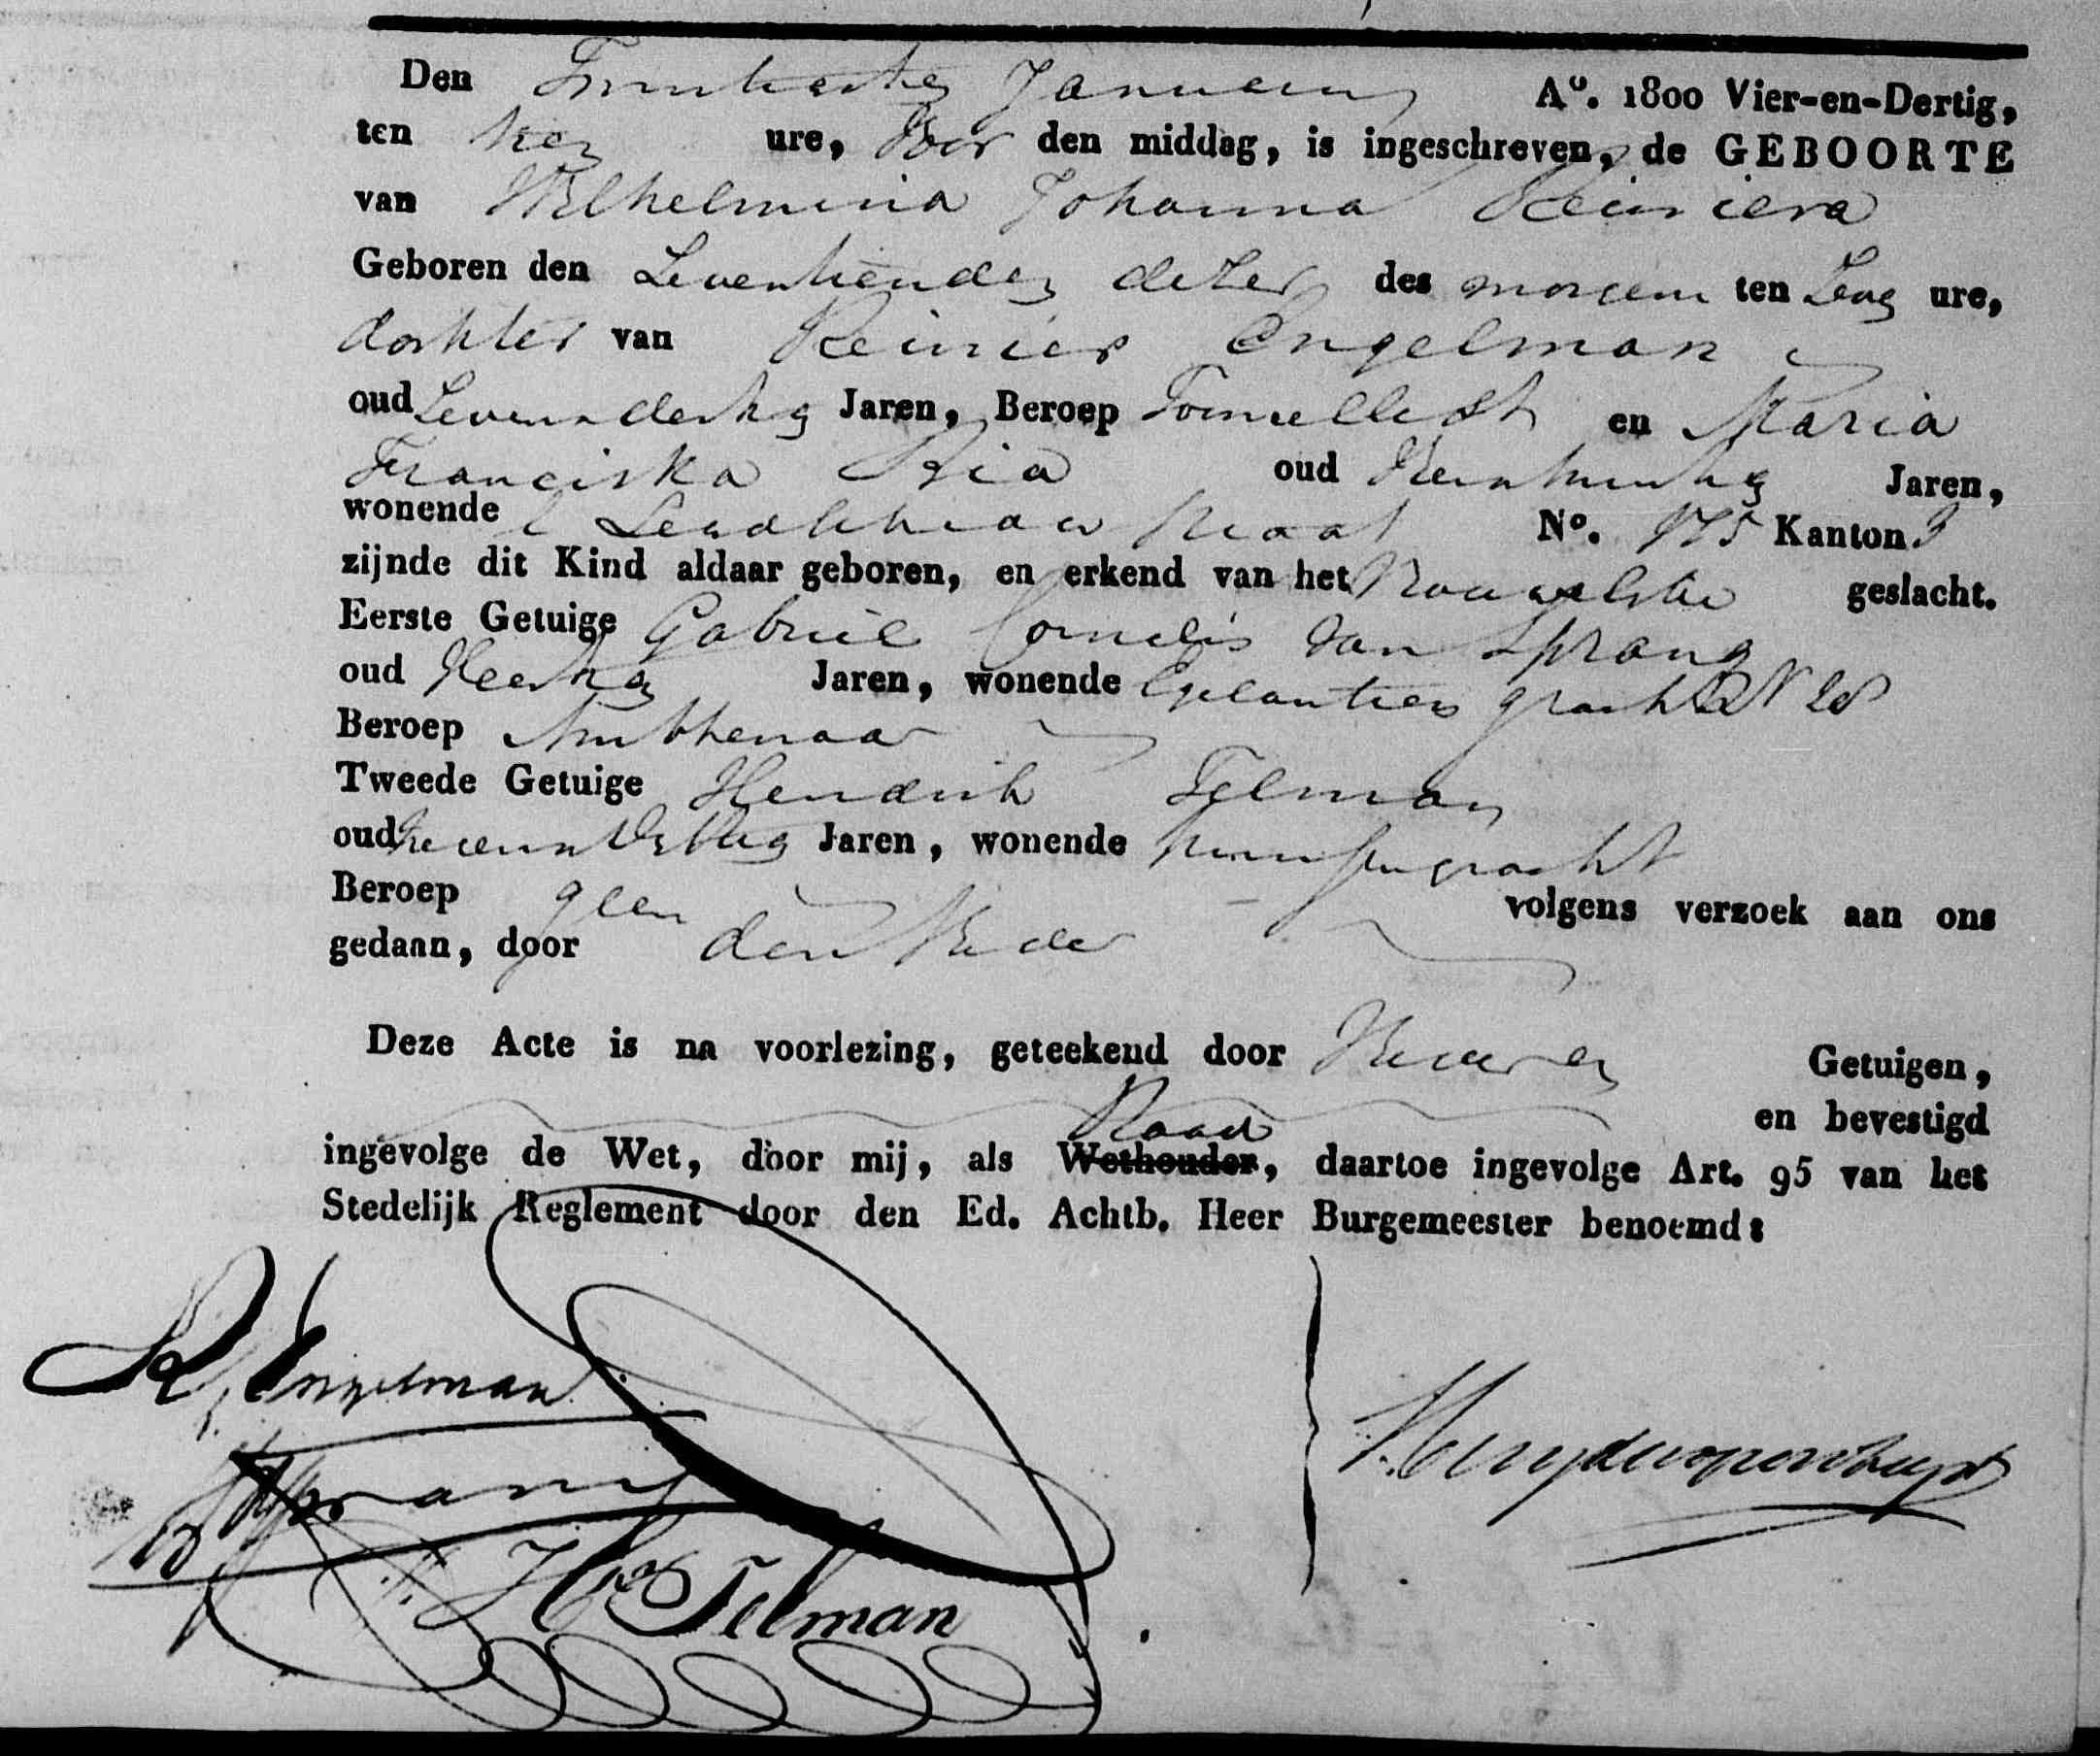 Den Twintigste Januarij Aº. 1800 Vier-en-Dertig,
ten tien ure, Voor den middag, is ingeschreven, de GEBOORTE
van Wilhelmina Johanna Reiniera
Geboren den Zeventienden dezer des morgens ten Zeven ure,
dochter van Reinier Engelman
oud Zevenendertig Jaren, Beroep Tonnellist en Maria
Franciska Ria oud Jaren,
wonende straat Nº. 175 Kanton 3
zijnde dit Kind aldaar geboren, en erkend van het Vrouwelijke geslacht.
Eerste Getuige Gabriel Cornelis Van Sprang
oud Veertig Jaren, wonende Egelantiers gracht N 28
Beroep Ambtenaar
Tweede Getuige Hendrik Telman
oud Jaren, wonende gracht
Beroep geen volgens verzoek aan ons
gedaan, door den Vader
Deze Acte is na voorlezing, geteekend door Getuigen,
en bevestigd
Raad
ingevolge de Wet, door mij, als Wethouder, daartoe ingevolge Art. 95 van het
Stedelijk Reglement door den Ed. Achtb. Heer Burgemeester benoemd:
R. Engelman
Sprang
Telman